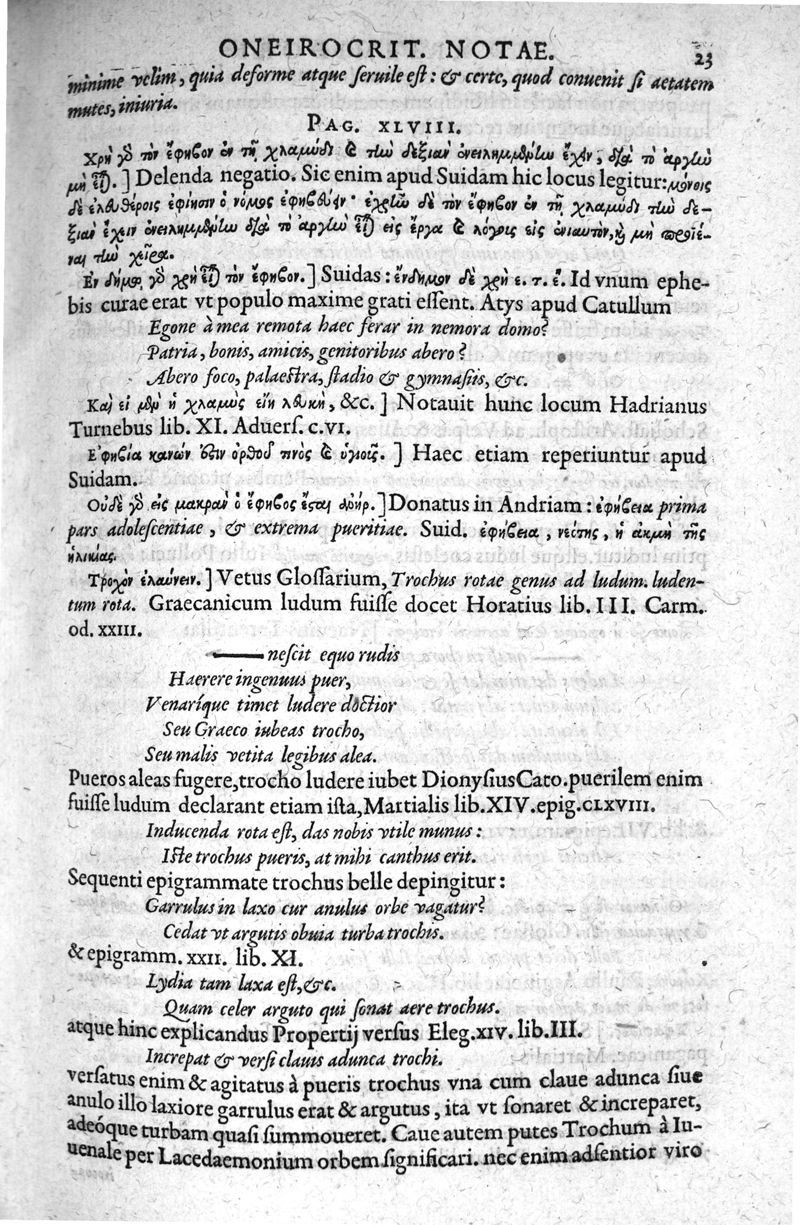 ONEIROCRIT. NOTAE. 23
minime velim, quia deforme atque ſeruile eſt: & certe, quod conuenit ſi aetatem
mutes, iniuria.
PAG. XLVIII.
Χρὴ γὸ τὸν ἔφηβον ἐν τῇ χλαμύδι καὶ τὴν δεξιὰν ἐνειλημμένην ἔχειν, διὰ τὸ ἀργὴν
μὴ εἶναι.] Delenda negatio. Sic enim apud Suidam hic locus legitur: μόνοις
δὲ ἐλευθέροις ἐφίησιν ὁ νόμος ἐφηβεύειν· ἐχρῆν δὲ τὸν ἔφηβον ἐν τῇ χλαμύδι τὴν δε-
ξιὰν ἔχειν ἐνειλημμένην διὰ τὸ ἀργὴν εἶναι εἰς ἔργα καὶ λόγοις εἰς ἐνιαυτὸν, καὶ μὴ προϊέ-
ναι τὴν χεῖρα.
Ἐν δήμῳ γὸ χρὴ εἶναι τὸν ἔφηβον.] Suidas: ἔνδημον δὲ χρὴ ε. τ. ἔ. Id vnum ephe-
bis curae erat vt populo maxime grati eſſent. Atys apud Catullum
Egone à mea remota haec ferar in nemora domo?
Patria, bonis, amicis, genitoribus abero?
Abero foco, palaeſtra, ſtadio & gymnaſiis, &c.
Καὶ εἰ μὲν ἡ χλαμὺς εἴη λευκὴ, &c.] Notauit hunc locum Hadrianus
Turnebus lib. XI. Aduerſ. c. VI.
Ἐφηβία κανών ἐστιν ὀρθοῦ βίος καὶ ὑγιοῦς.] Haec etiam reperiuntur apud
Suidam.
Οὐδὲ γὸ εἰς μακρὰν ὁ ἔφηβος ἔσται ἀνήρ.] Donatus in Andriam: ἐφήβεια prima
pars adoleſcentiae, & extrema pueritiae. Suid. ἐφήβεια, νεότης, ἢ ἀκμὴ τῆς
ἡλικίας.
Τροχὸν ἐλαύνειν.] Vetus Gloſſarium, Trochus rotae genus ad ludum. luden-
tum rota. Graecanicum ludum fuiſſe docet Horatius lib. III. Carm.
od. XXIII.
—— neſcit equo rudis
Haerere ingenuus puer,
Venaríque timet ludere doctior
Seu Graeco iubeas trocho,
Seu malis vetita legibus alea.
Pueros aleas fugere, trocho ludere iubet Dionyſius Cato. puerilem enim
fuiſſe ludum declarant etiam iſta, Martialis lib. XIV. epig. CLXVIII.
Inducenda rota eſt, das nobis vtile munus:
Iſte trochus pueris, at mihi canthus erit.
Sequenti epigrammate trochus belle depingitur:
Garrulus in laxo cur anulus orbe vagatur?
Cedat vt argutis obuia turba trochis.
& epigramm. XXII. lib. XI.
Lydia tam laxa eſt, &c.
Quam celer arguto qui ſonat aere trochus.
atque hinc explicandus Propertij verſus Eleg. XIV. lib. III.
Increpat & verſi clauis adunca trochi.
verſatus enim & agitatus à pueris trochus vna cum claue adunca ſiue
anulo illo laxiore garrulus erat & argutus, ita vt ſonaret & increparet,
adeóque turbam quaſi ſummoueret. Caue autem putes Trochum à Iu-
uenale per Lacedaemonium orbem ſignificari. nec enim adſentior viro